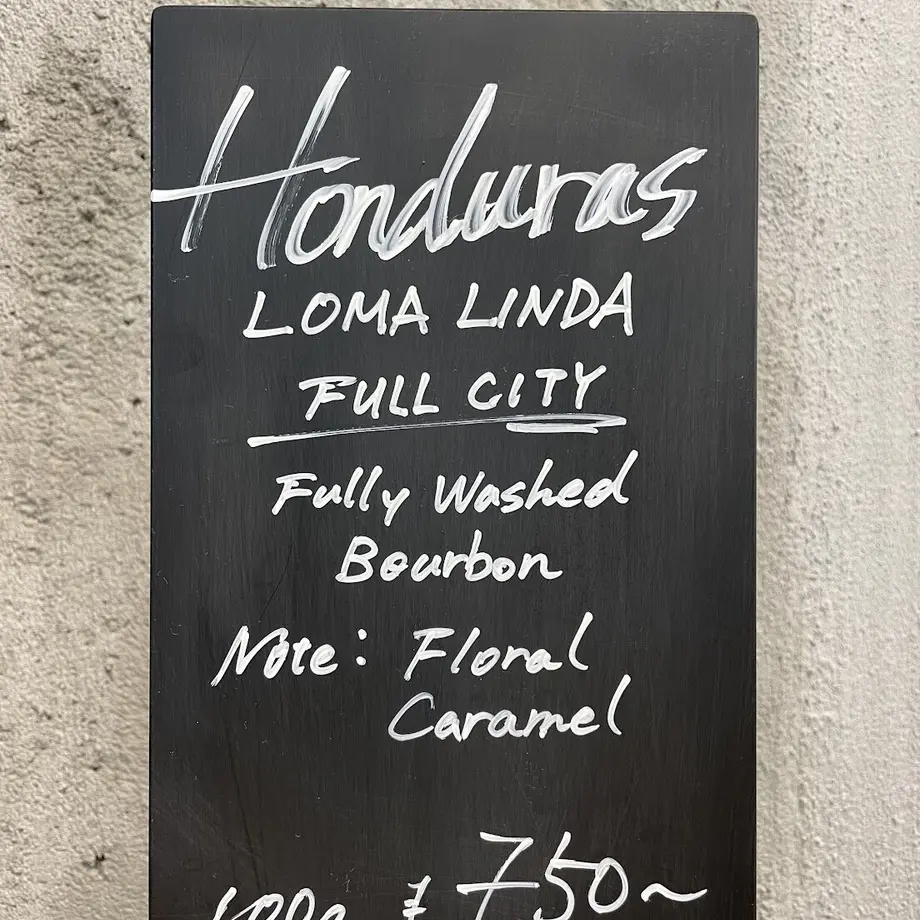 Honduras
LOMA LINDA
FULL CITY
Fully Washed
Bourbon
Note: Floral
Caramel
100g ¥750~